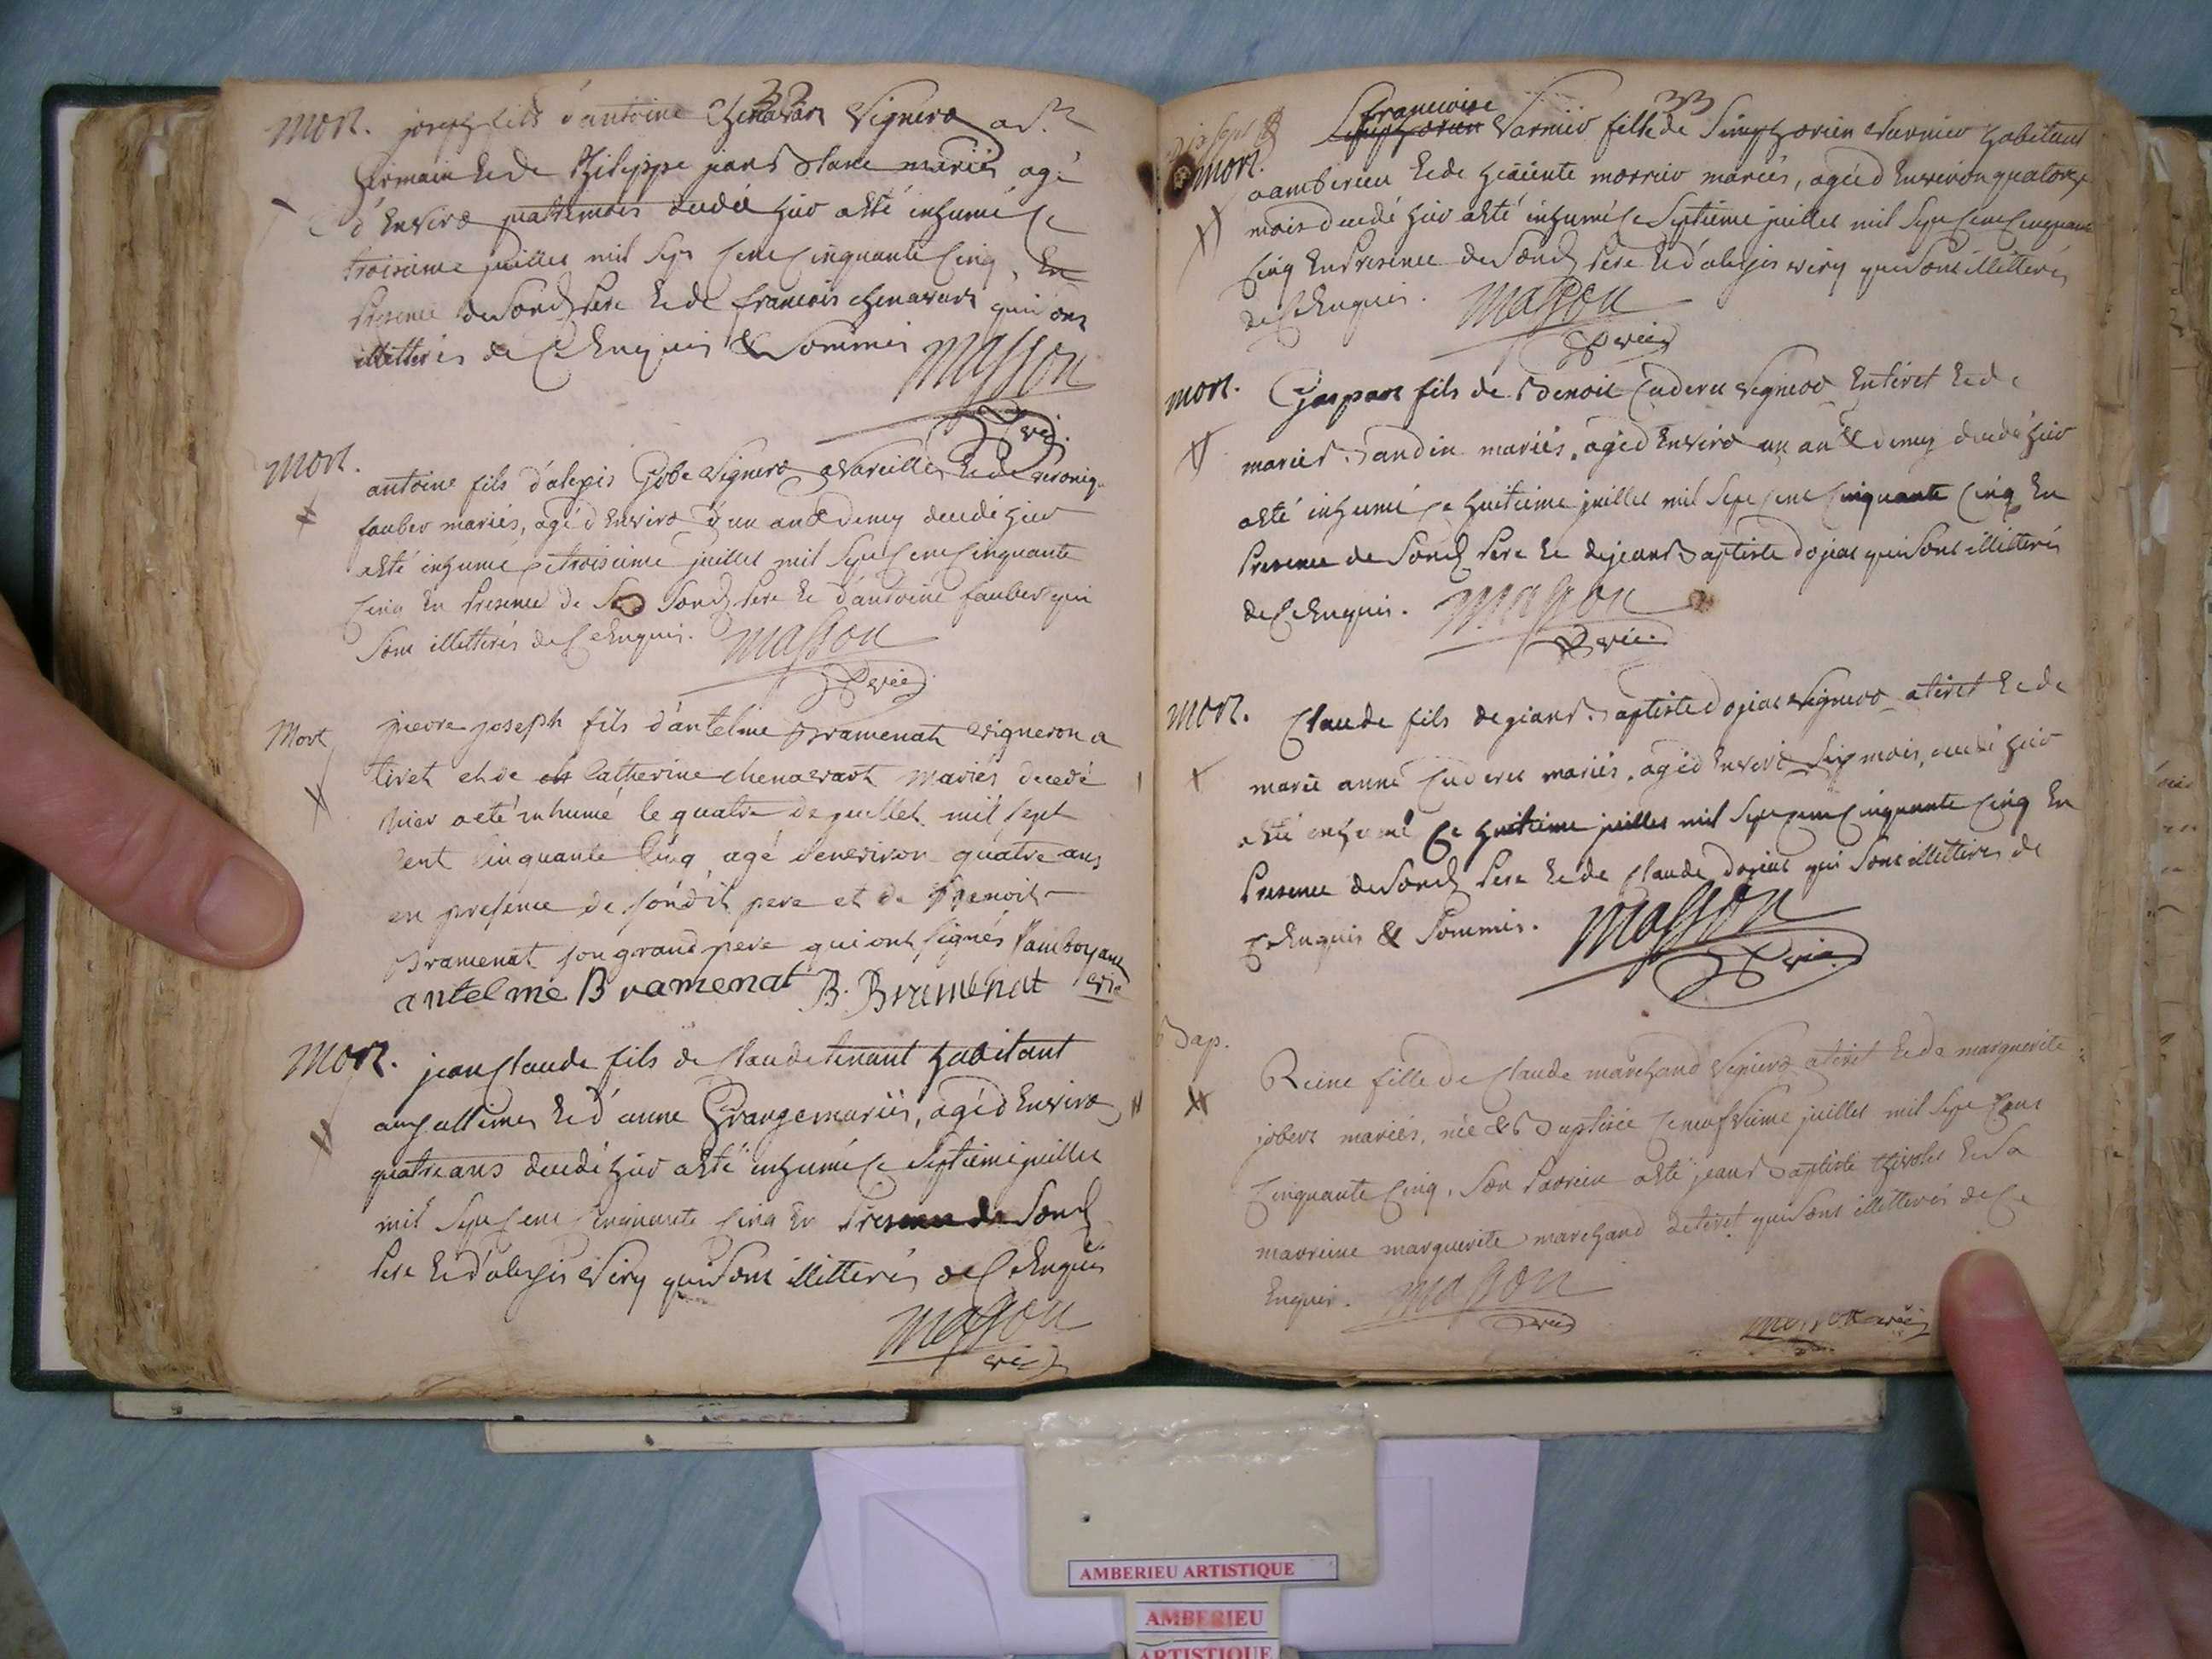 32
mort. joseph fils d'antoine chenavar vigneron a St
germain et de philippe
d'environ quatre mois decedé hier a été inhumé ce
troisieme juillet mil sept cent cinquante cinq, en
presence de sond pere et de francois chenavard qui sont
illitterés de ce enquis & sommés
masson
vic.
mort. antoine fils d'alexis gobe vigneron a vareilles et de veroniq
fauber mariés, agé d'environ d'un an & demy decedé hier
a été inhumé ce troisieme juillet mil sept cent cinquante
cinq en presence de sond pere et d'antoine fauber qui
sont illitterés de ce enquis. masson
vic
Mort pierre joseph fils d'antelme Bramenat vigneron a
tiret et de catherine chenavart mariés decedé
hier a eté inhumé le quatre de juillet mil sept
cent cinquante cinq agé d'environ quatre ans
en presence de sondit pere et de Benoit
Bramenat son grand pere qui ont signés
antelme Bramenat B. Bramenat vic
Mort. jean claude fils de claude tenant habitant
aux allimes et d'anne grange mariés, agé d'environ
quatre ans decedé hier a été inhumé ce septieme juillet
mil sept cent cinquante cinq en presence de sond
pere et d'alexis very qui sont illitterés de ce enquis
masson
vic
33
francoise
mort. simphorien varnier fille de simphorien varnier habitant
a amberieu et de mariés, agée d'environ quatorze
mois decedé hier a été inhumé ce septieme juillet mil sept cent cinquante
cinq en presence de sond pere et d'alexis very qui sont illitterés
de ce enquis. masson
vic
mort. Gaspart fils de Benoit cuderu vigneron en tiret et de
marie mariés, agé d'environ un an & demy decedé hier
a été inhumé ce huitieme juillet mil sept cent cinquante cinq en
presence de sond pere et de jean Baptiste dojat qui sont illitterés
de ce enquis. masson
vic.
mort. Claude fils de jean Baptiste dojat vigneron a tiret et de
marie anne cuderu mariés, agé d'environ six mois, decedé hier
a été inhumé ce huitieme juillet mil sept cent cinquante cinq en
presence de sond pere et de claude dojat qui sont illitterés de
ce enquis & sommés. masson
vic.
Bap. Reine fille de claude marchand vigneron a tiret et de marguerite
jobert mariés, née & Baptisée ce neufvieme juillet mil sept cent
cinquante cinq, son parrein a été jean Baptiste et sa
marreine marguerite marchand de tiret qui sont illitterés de ce
enquis. masson
vic
masson vic
AMBERIEU ARTISTIQUE
AMBERIEU
ARTISTIQUE